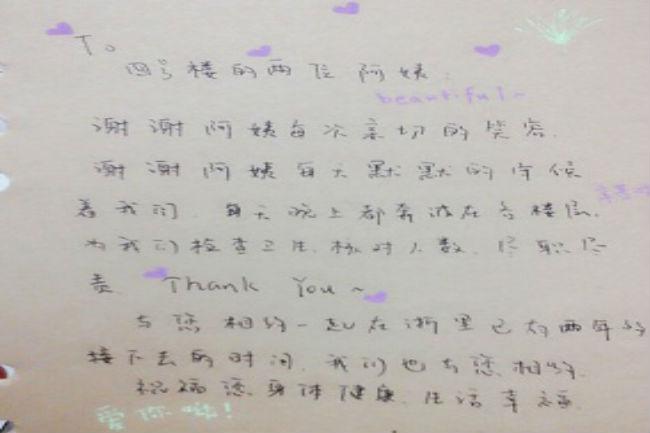 To
四号楼的两位阿姨:
beautiful~
谢谢阿姨每次亲切的笑容.
谢谢阿姨每天默默的守候
着我们.每天晚上都奔波在各楼层.
为我们检查卫生.核对人数.尽职尽
责 Thank You~
与您相约一起在浙里已有两年
接下去的时间.我们也与您相约.
祝福您身体健康.生活幸福
爱你哟!